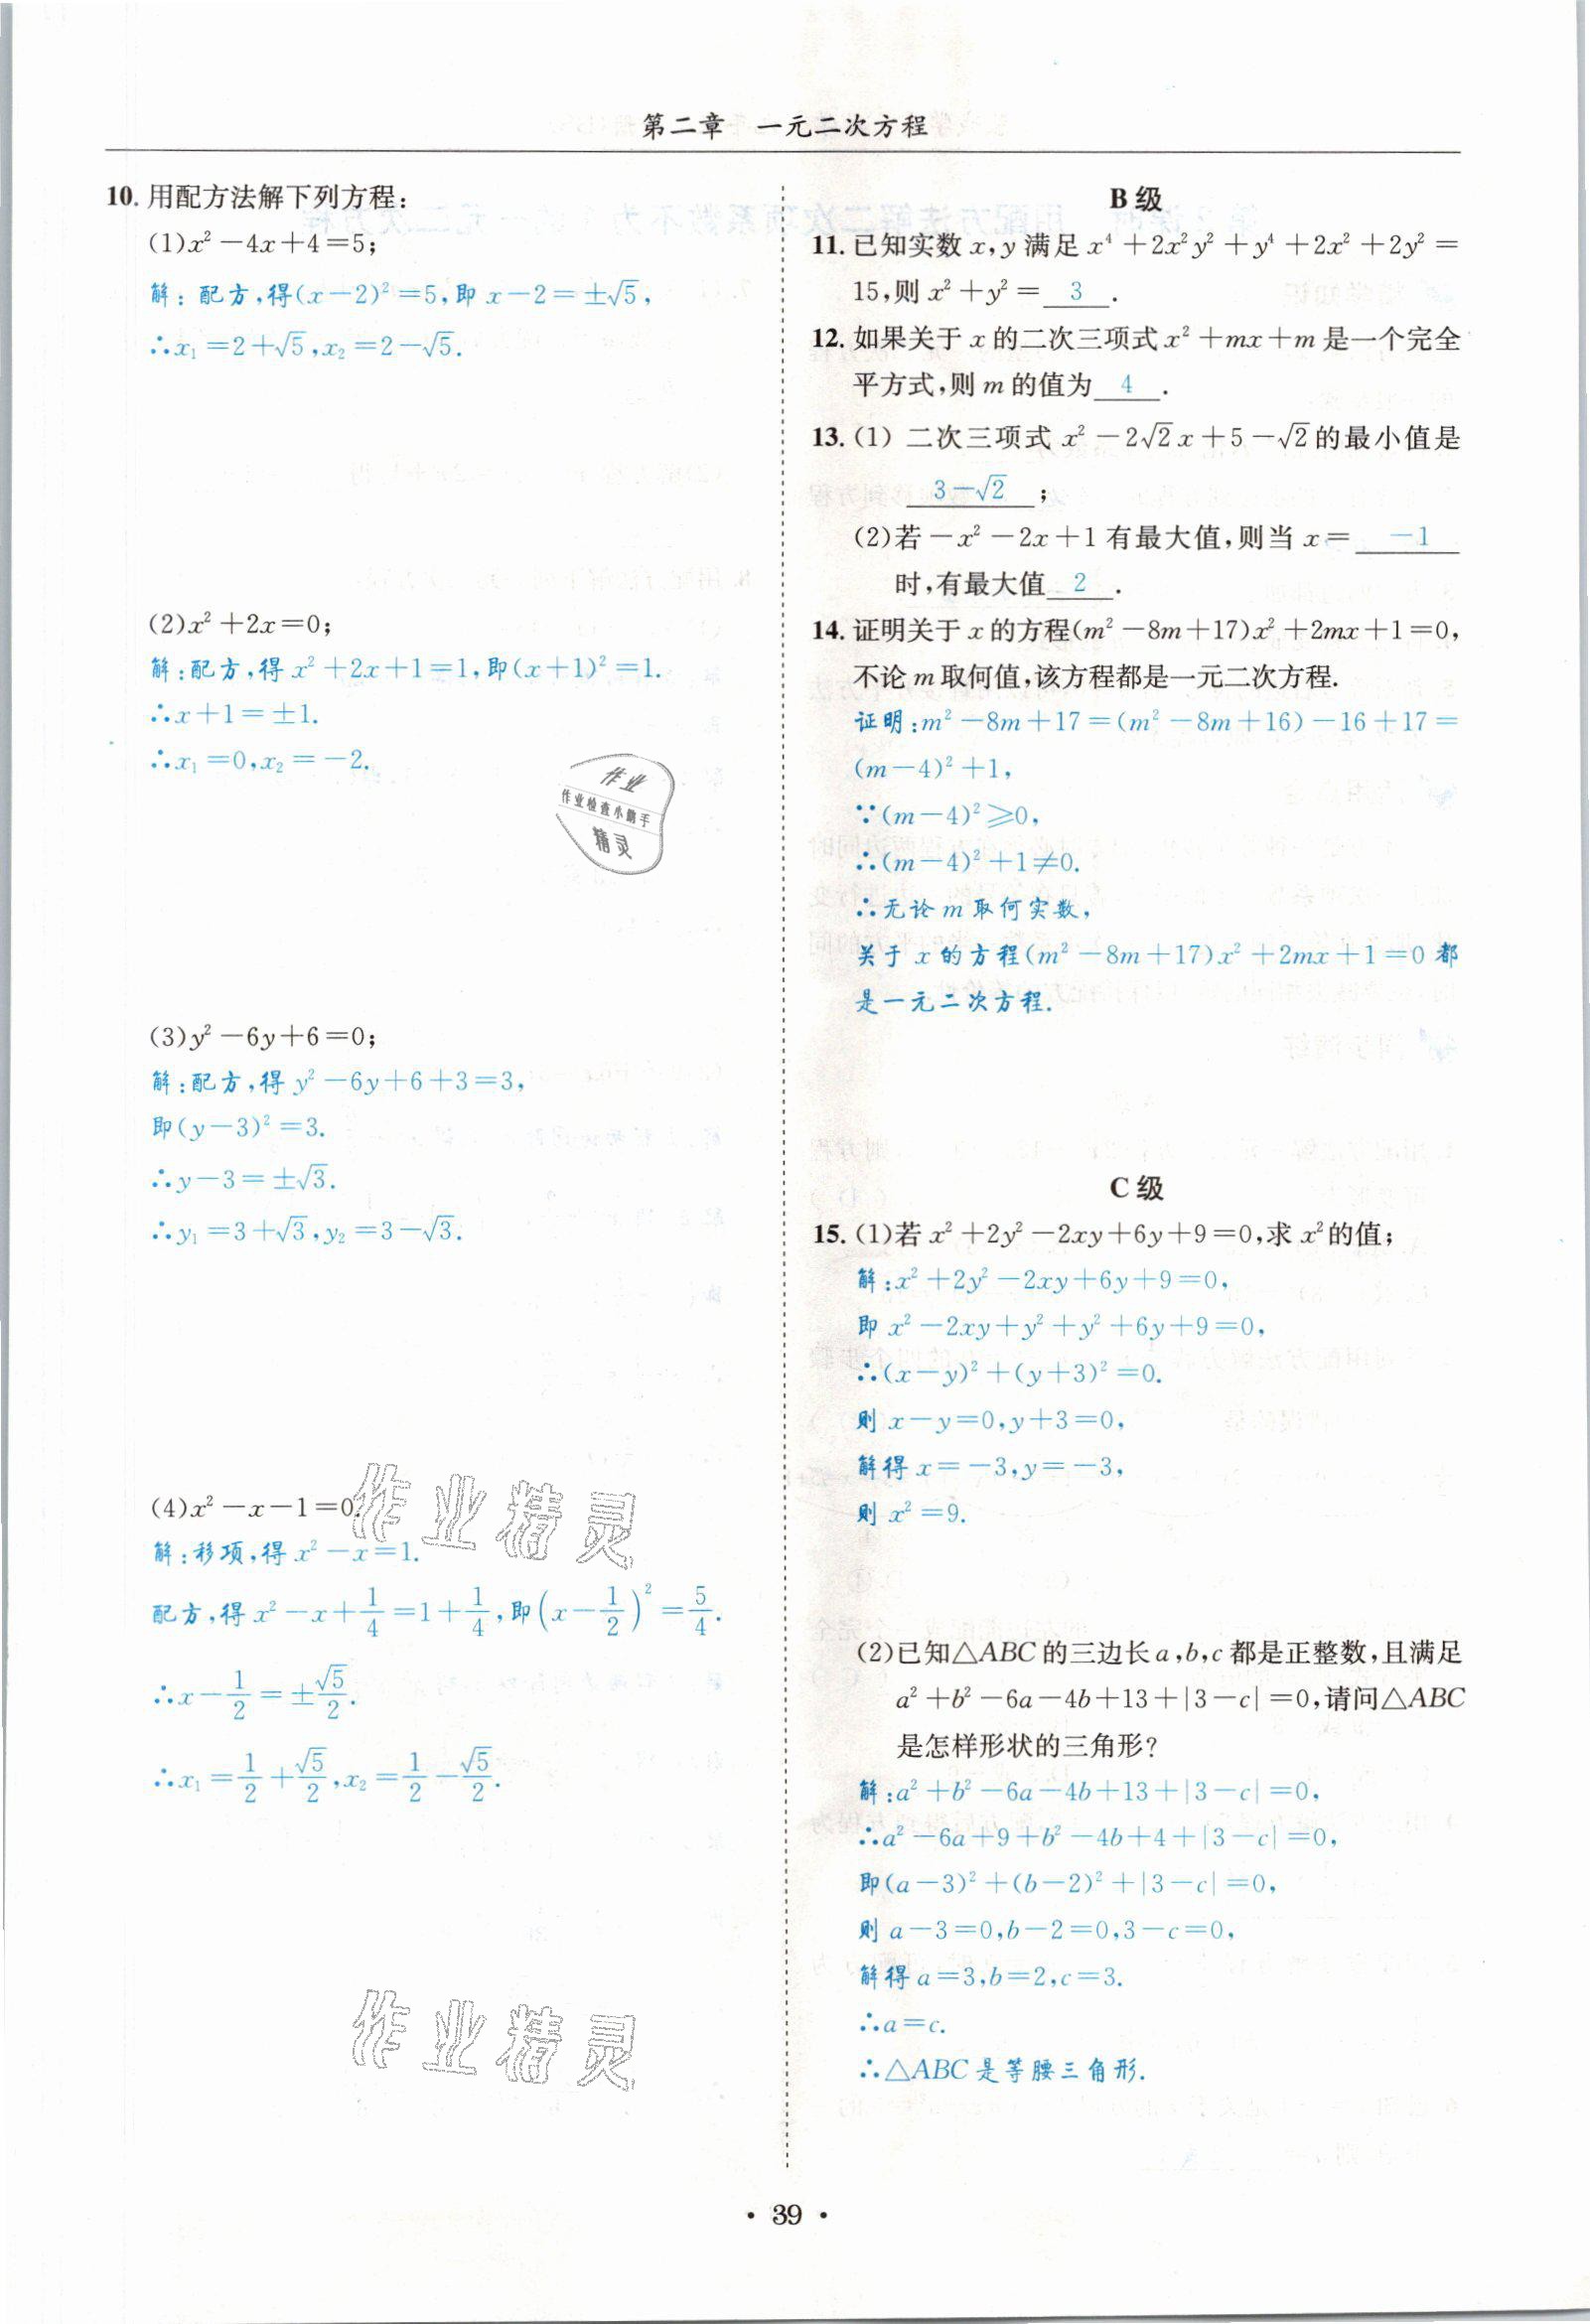 第二章 一元二次方程
10. 用配方法解下列方程:
(1)x²-4x+4=5;
解:配方,得(x-2)²=5,即x-2=±√5,
∴x₁=2+√5,x₂=2-√5.
(2)x²+2x=0;
解:配方,得x²+2x+1=1,即(x+1)²=1.
∴x+1=±1.
∴x₁=0,x₂=-2.
作业
作业检查小助手
精灵
(3)y²-6y+6=0;
解:配方,得y²-6y+6+3=3,
即(y-3)²=3.
∴y-3=±√3.
∴y₁=3+√3,y₂=3-√3.
(4)x²-x-1=0.
解:移项,得x²-x=1.
配方,得x²-x+1/4=1+1/4,即(x-1/2)²=5/4.
∴x-1/2=±√5/2.
∴x₁=1/2+√5/2,x₂=1/2-√5/2.
作业精灵
作业精灵
B级
11. 已知实数x,y满足x⁴+2x²y²+y⁴+2x²+2y²=
15,则x²+y²=3.
12. 如果关于x的二次三项式x²+mx+m是一个完全
平方式,则m的值为4.
13. (1)二次三项式x²-2√2x+5-√2的最小值是
3-√2;
(2)若-x²-2x+1有最大值,则当x=-1
时,有最大值2.
14. 证明关于x的方程(m²-8m+17)x²+2mx+1=0,
不论m取何值,该方程都是一元二次方程.
证明:m²-8m+17=(m²-8m+16)-16+17=
(m-4)²+1,
∵(m-4)²≥0,
∴(m-4)²+1≠0.
∴无论m取何实数,
关于x的方程(m²-8m+17)x²+2mx+1=0都
是一元二次方程.
C级
15. (1)若x²+2y²-2xy+6y+9=0,求x²的值;
解:x²+2y²-2xy+6y+9=0,
即x²-2xy+y²+y²+6y+9=0,
∴(x-y)²+(y+3)²=0.
则x-y=0,y+3=0,
解得x=-3,y=-3,
则x²=9.
(2)已知△ABC的三边长a,b,c都是正整数,且满足
a²+b²-6a-4b+13+|3-c|=0,请问△ABC
是怎样形状的三角形?
解:a²+b²-6a-4b+13+|3-c|=0,
∴a²-6a+9+b²-4b+4+|3-c|=0,
即(a-3)²+(b-2)²+|3-c|=0,
则a-3=0,b-2=0,3-c=0,
解得a=3,b=2,c=3.
∴a=c.
∴△ABC是等腰三角形.
· 39 ·